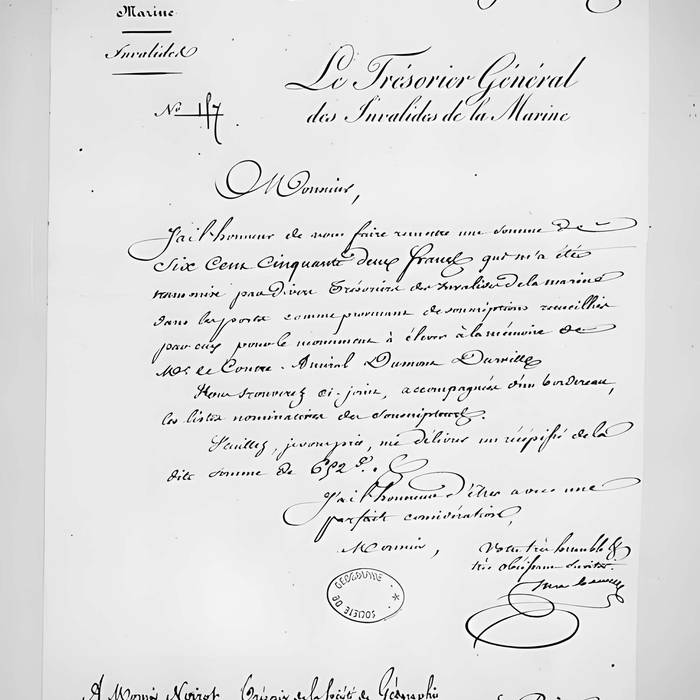 Marine
Invalides
Le Trésorier Général
des Invalides de la Marine
No 157
Monsieur,
J'ai l'honneur de vous faire remettre une somme de
Six Cent Cinquante deux francs qui m'a été
transmise par divers Trésoriers des Invalides de la marine
dans les ports comme provenant de souscriptions recueillies
par eux pour le monument à élever à la mémoire de
Mr le Contre-Amiral Dumont Durville
Vous trouverez ci-joint, accompagnées d'un bordereau,
les listes nominatives des Souscripteurs.
Veuillez, je vous prie, me délivrer un récépissé de la
dite somme de 652 f.
J'ai l'honneur d'être avec une
parfaite considération,
Monsieur,
Votre très humble &
très obéissant Serviteur
SOCIETE DE GEOGRAPHIE
A Monsieur Noirot, Trésorier de la Société de Géographie